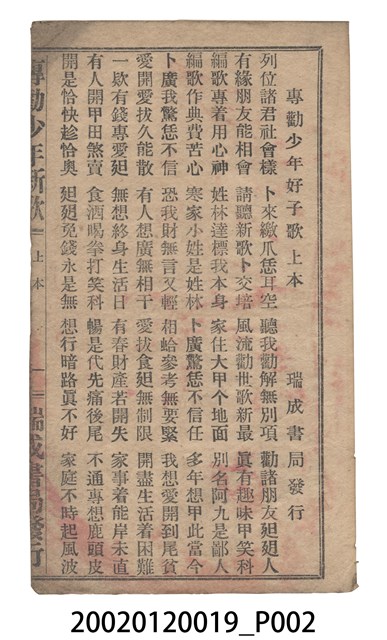 專勸少年好子歌上本　瑞成書局發行
列位諸君社會樣　卜來繳爪恁耳空　聽我勸解無別項　勸諸朋友𨑨迌人
有緣朋友能相會　請聽新歌卜交培　風流勸世歌新最　眞有趣味甲笑科
編歌專着用心神　姓林達標我本身　家住大甲个地面　別名阿九是鄙人
編歌作典費苦心　寒家小姓是姓林　卜廣驚恁不信任　多年想甲此當今
卜廣我驚恁不信　恐我財無言又輕　相蛤參考無要緊　我想愛開到尾貧
愛開愛拔久能散　有人想廣無相干　愛拔食𨑨無制限　開盡生活着困難
一欵有錢專愛𨑨　無想終身生活日　有春財產若開失　家事着能岸未直
有人開甲田煞賣　食酒喝拳打笑科　暢是代先痛後尾　不通專想鹿頭皮
開是恰快趁恰奧　𨑨迌免錢永是無　想行暗路眞不好　家庭不時起風波
專勸少年新歌　上本　一　瑞成書局發行
20020120019_P002